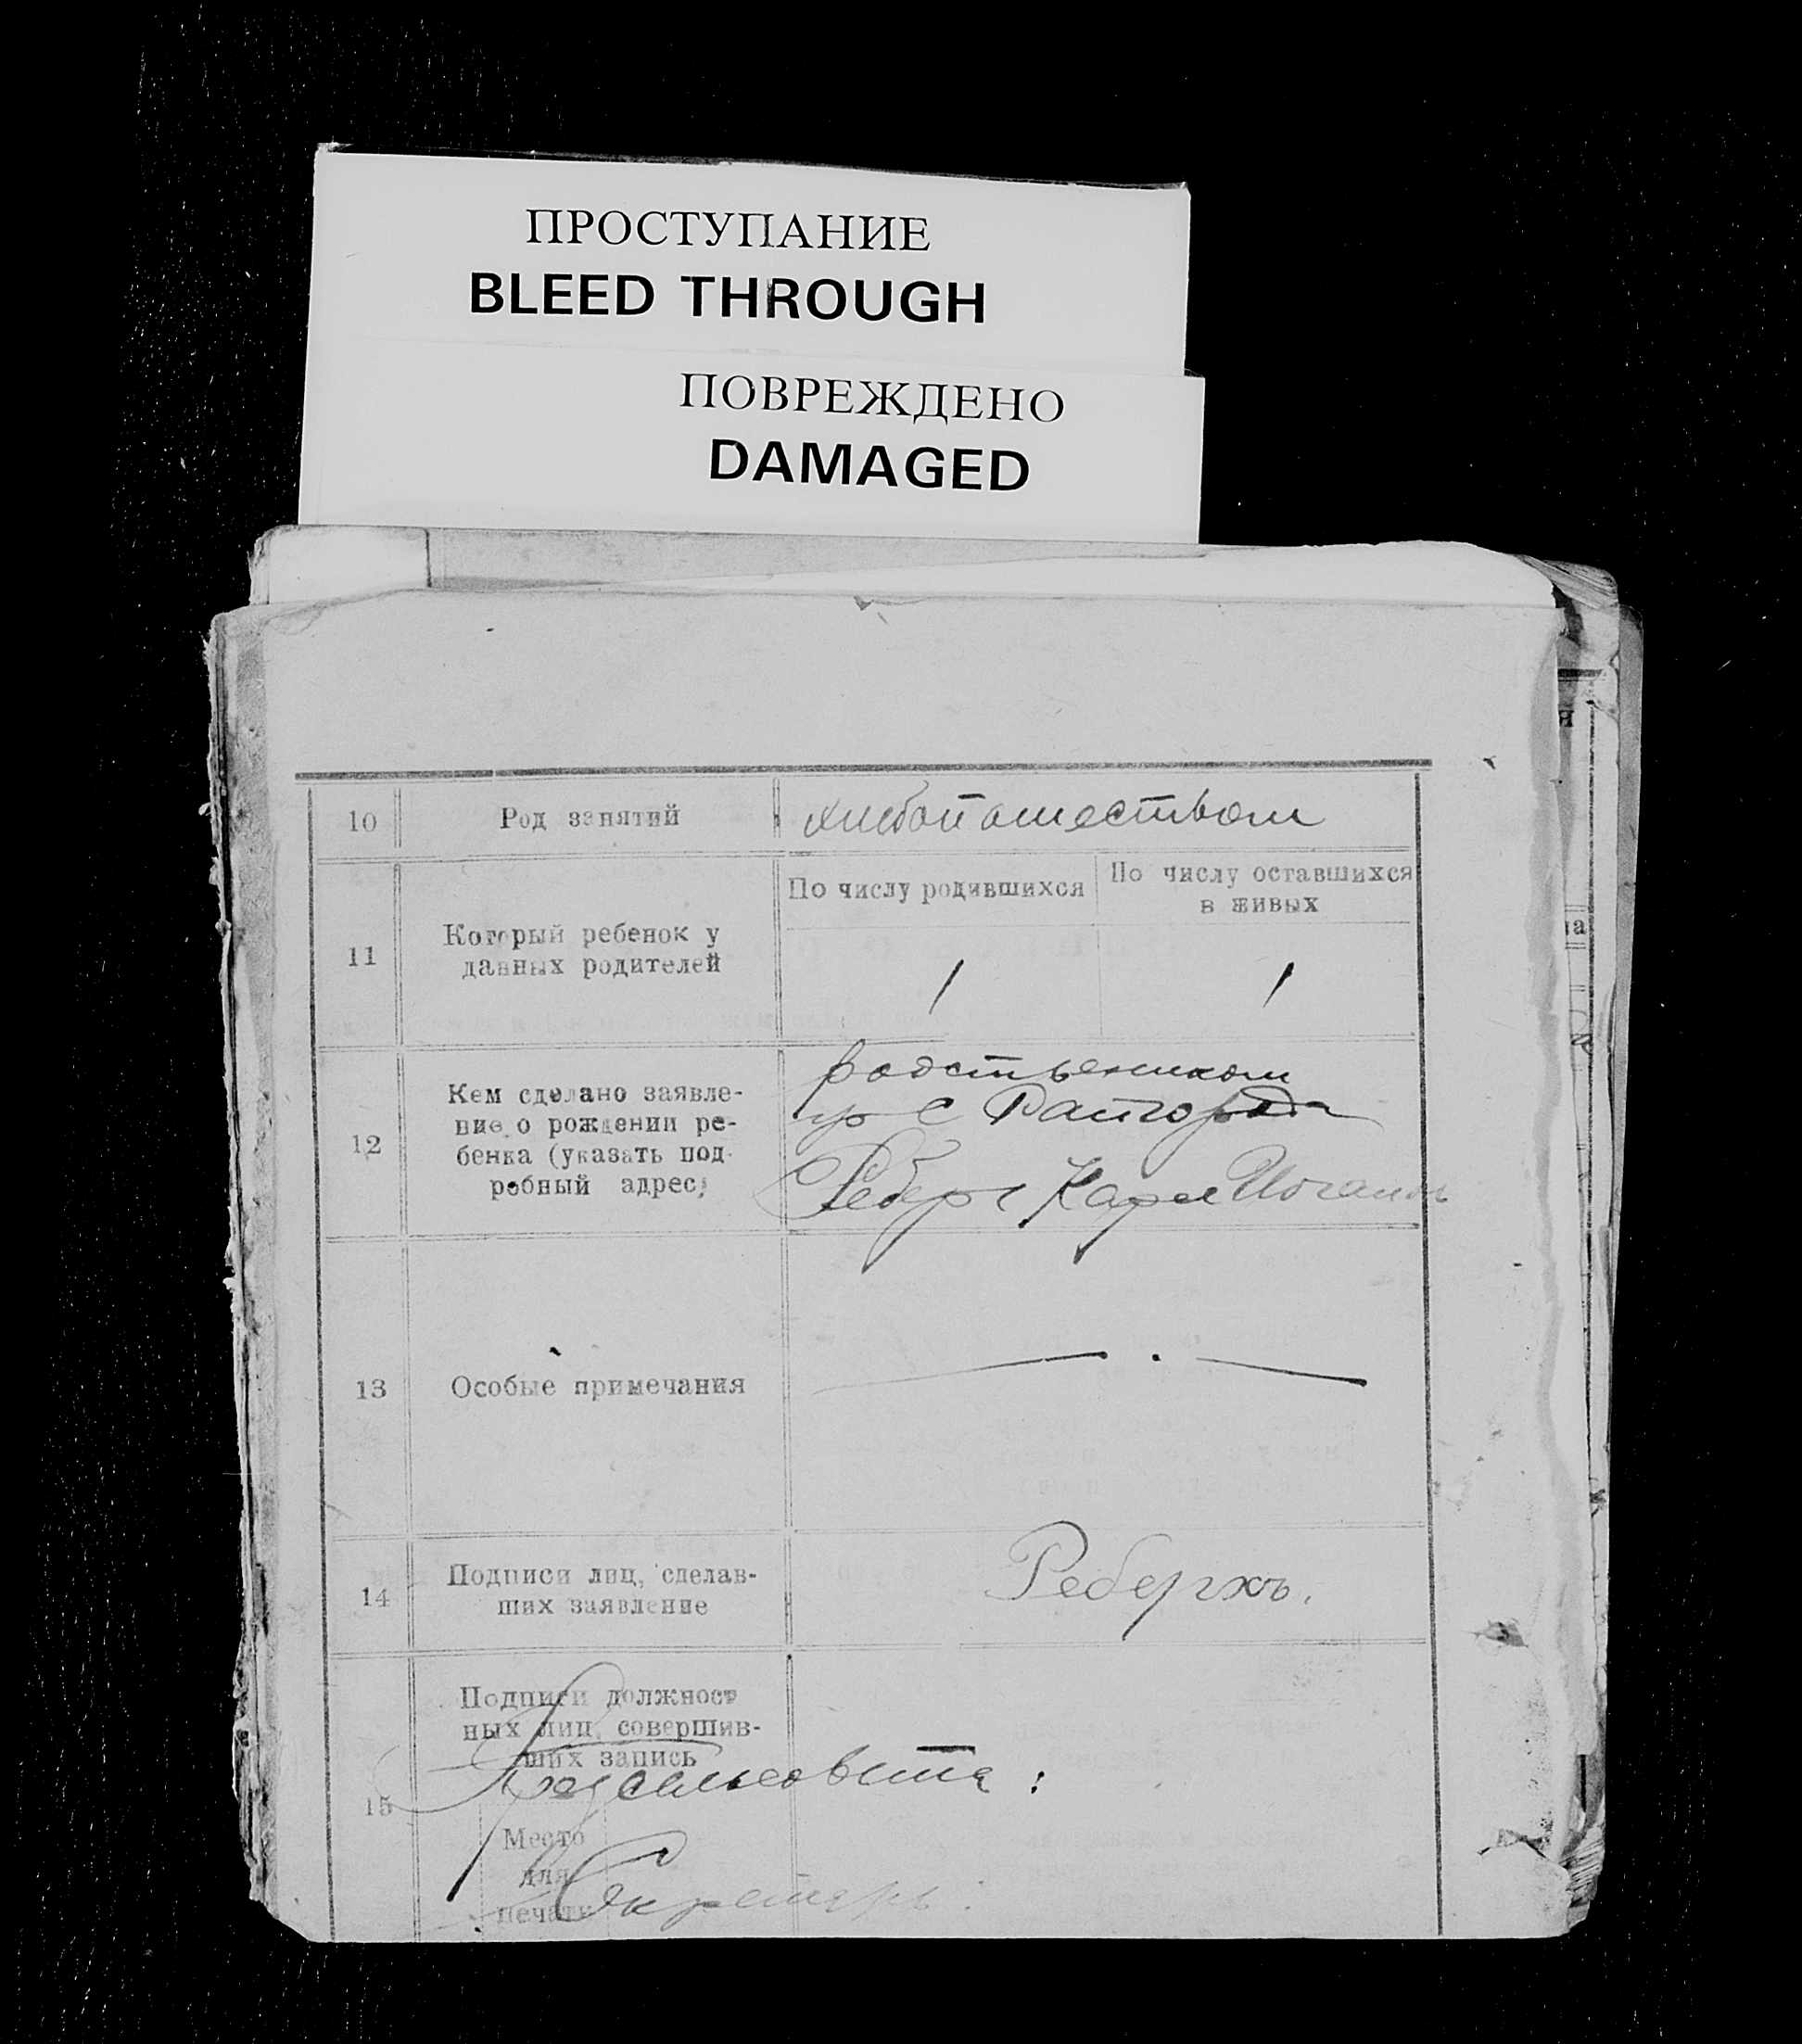 ПРОСТУПАНИЕ
BLEED THROUGH
ПОВРЕЖДЕНО
DAMAGED
10 Род занятий хлебопашеством
11 Который ребенок у данных родителей
По числу родившихся
По числу оставшихся
в живых
1 1
12 Кем сделано заявле-
ние о рождении ре-
бенка (указать под-
робный адрес)
родственником
гр с Райгорода
Реберг Карл Иоганов
13 Особые примечания — . —
14 Подписи лиц, сделав-
ших заявление
Ребергхъ.
15 Подписи должност
ных лиц, совершив-
ших запись
Предсельсовета:
Место
для
печати
Секретарь: